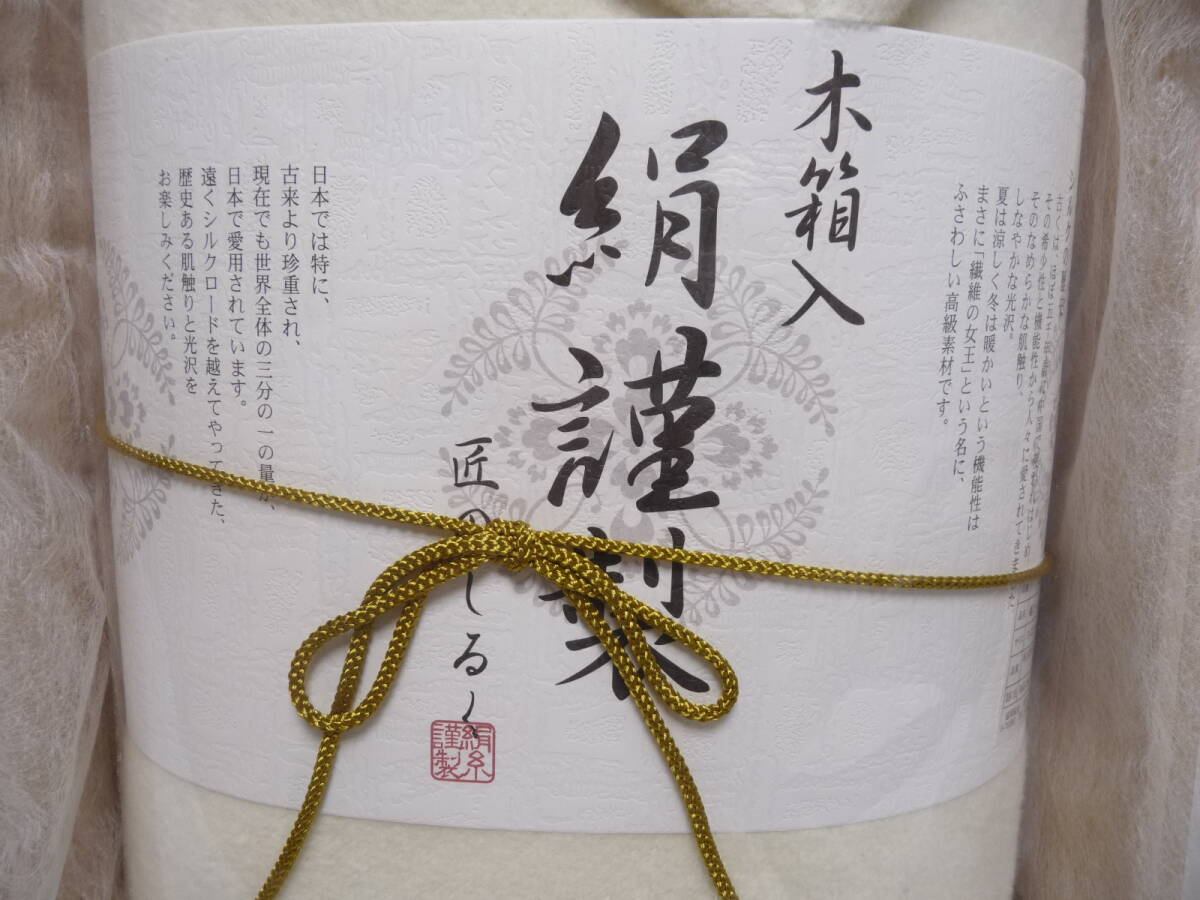 木箱入
絹謹製
匠のしるく
絹糸
謹製
その希少性と機能性から人々に愛されてきました
そのなめらかな肌触り、
しなやかな光沢。
夏は涼しく冬は暖かいという機能性は
まさに「繊維の女王」という名に、
ふさわしい高級素材です。
日本では特に、
古来より珍重され、
現在でも世界全体の三分の一の量が、
日本で愛用されています。
遠くシルクロードを越えてやってきた、
歴史ある肌触りと光沢を
お楽しみください。